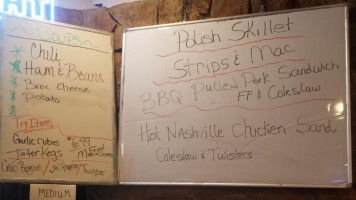 Soups
Chili
Ham & Beans
Broc Cheese
Potato
Try Item
Garlic Cubes
Tater Kegs
$6.99
Fried
Polish Skillet
Strips & Mac
BBQ Pulled Pork Sandwich
FF & Coleslaw
Hot Nashville Chicken Sand
Coleslaw & Twisters
MEDIUM